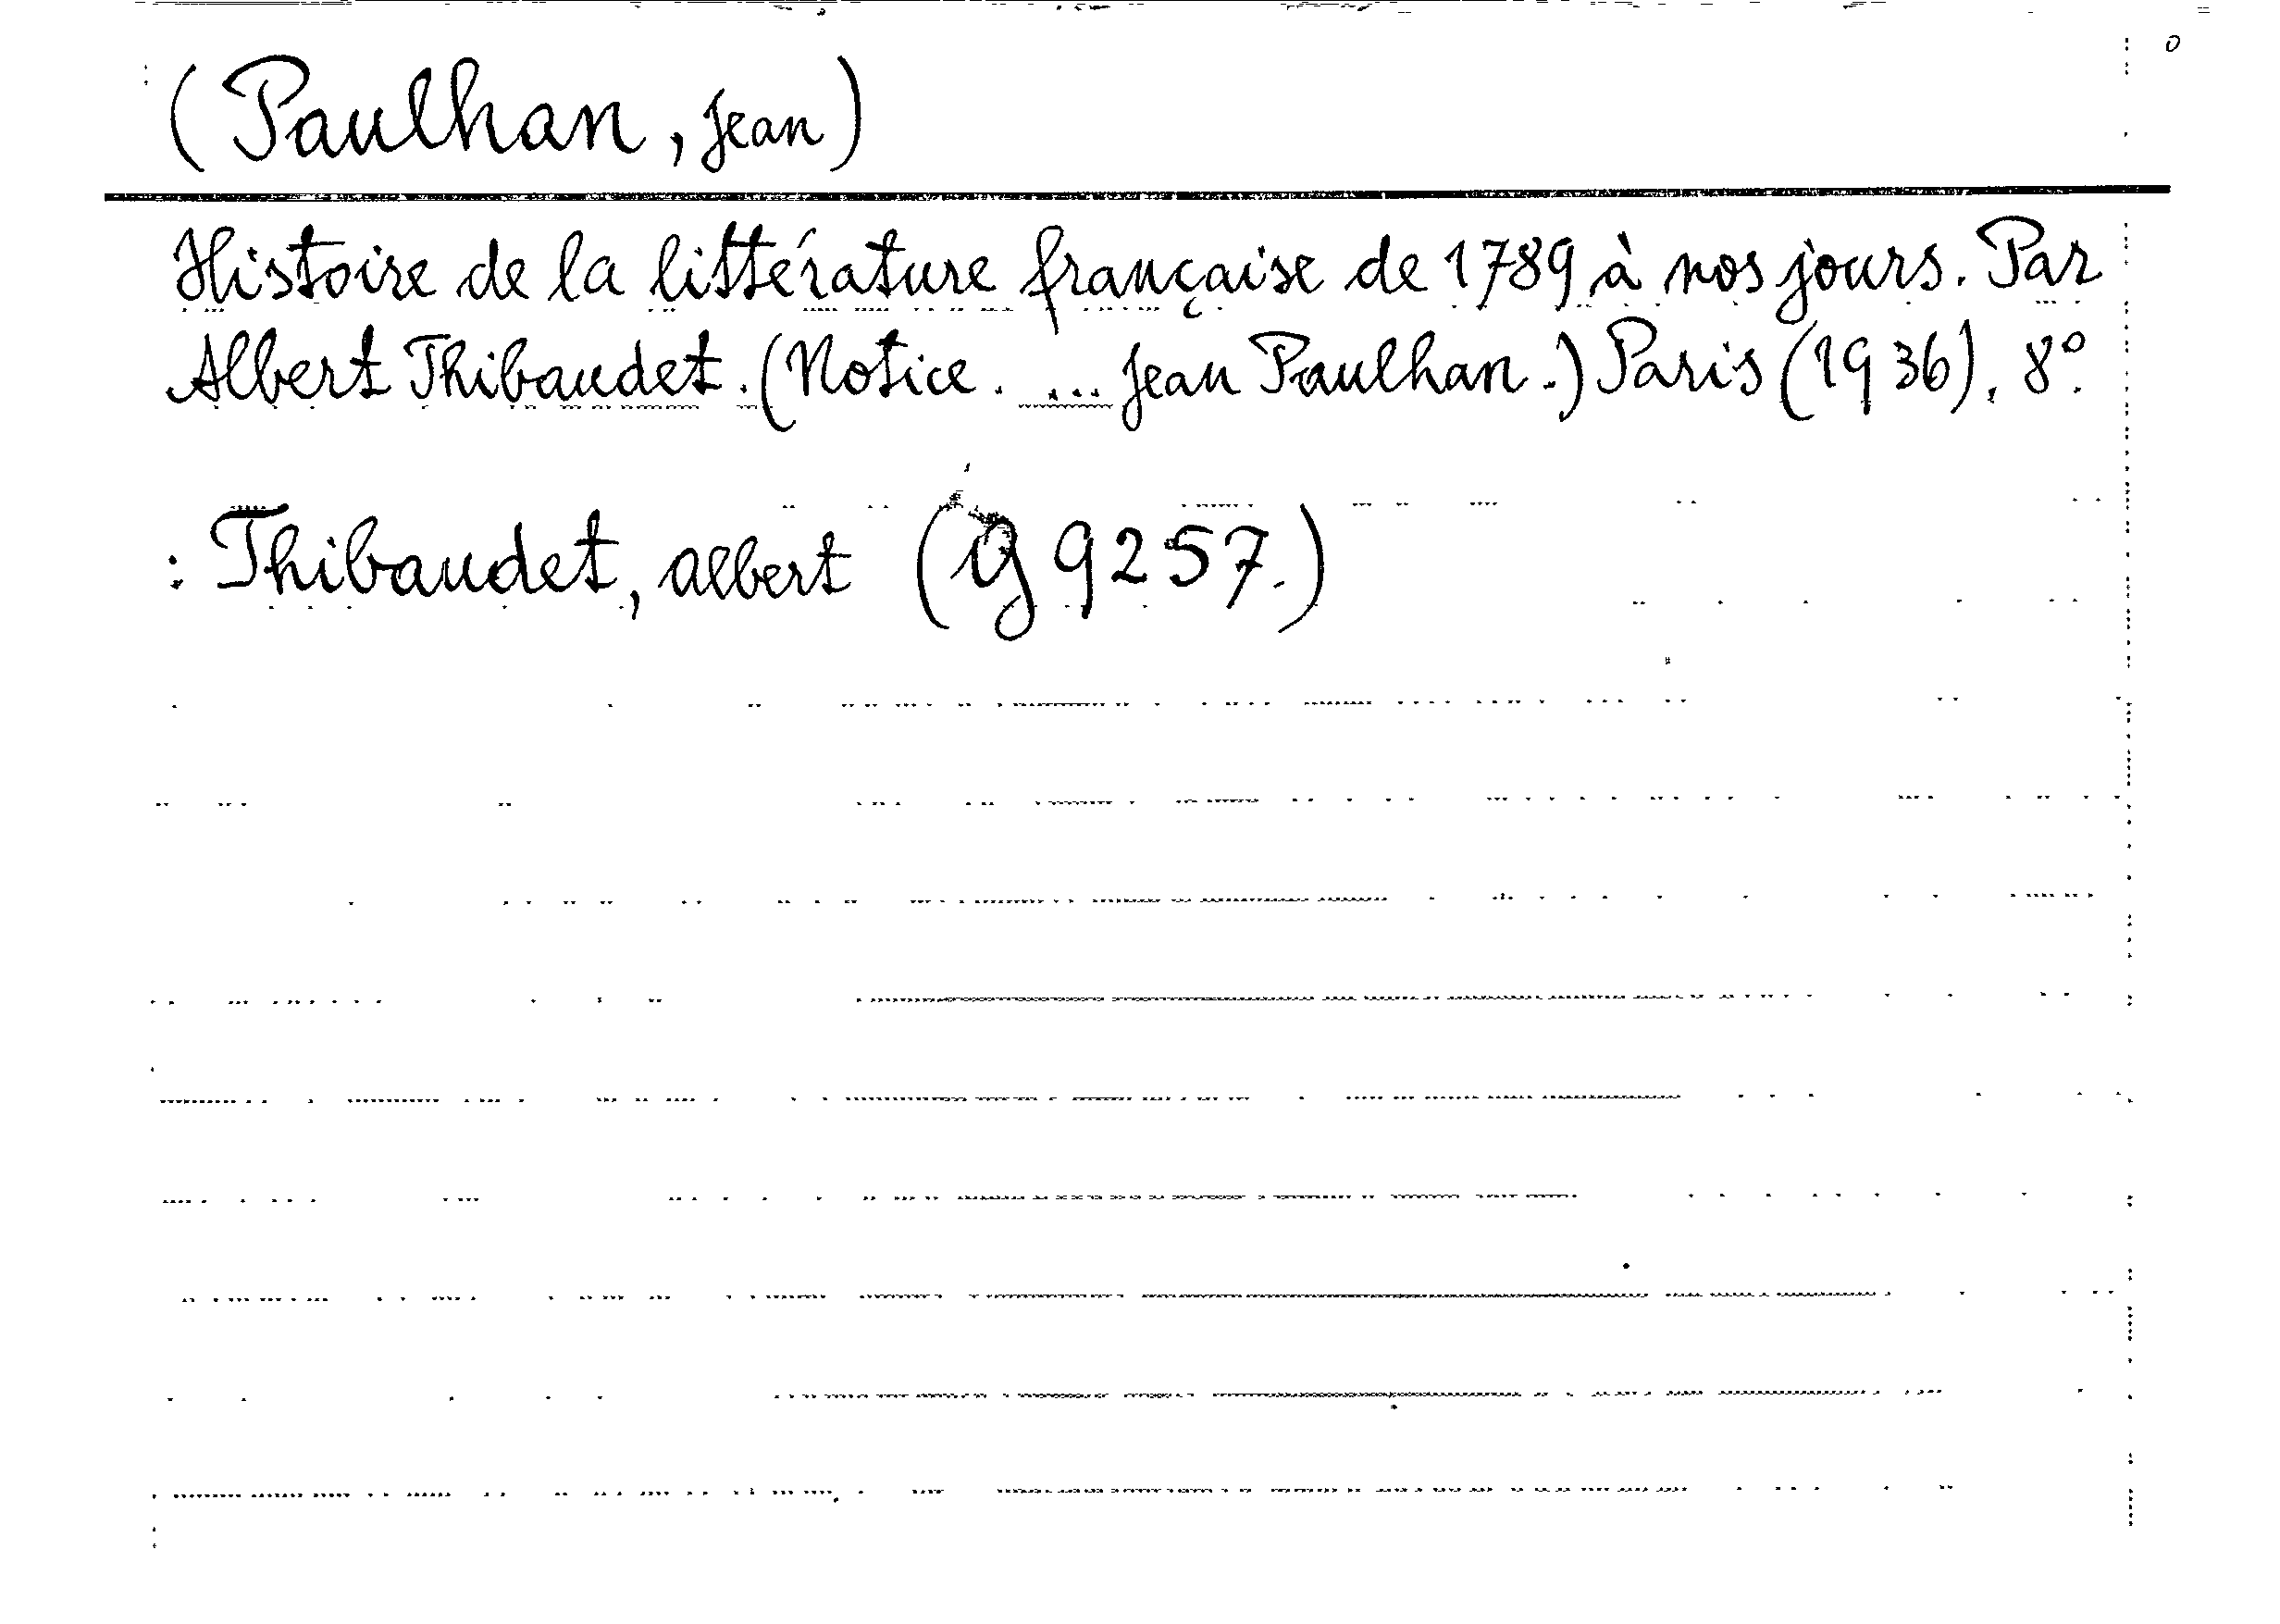 (Paulhan, Jean)
Histoire de la littérature française de 1789 à nos jours. Par
Albert Thibaudet. (Notice. ... Jean Paulhan.) Paris (1936). 8°.
: Thibaudet, Albert (Ig 9257.)